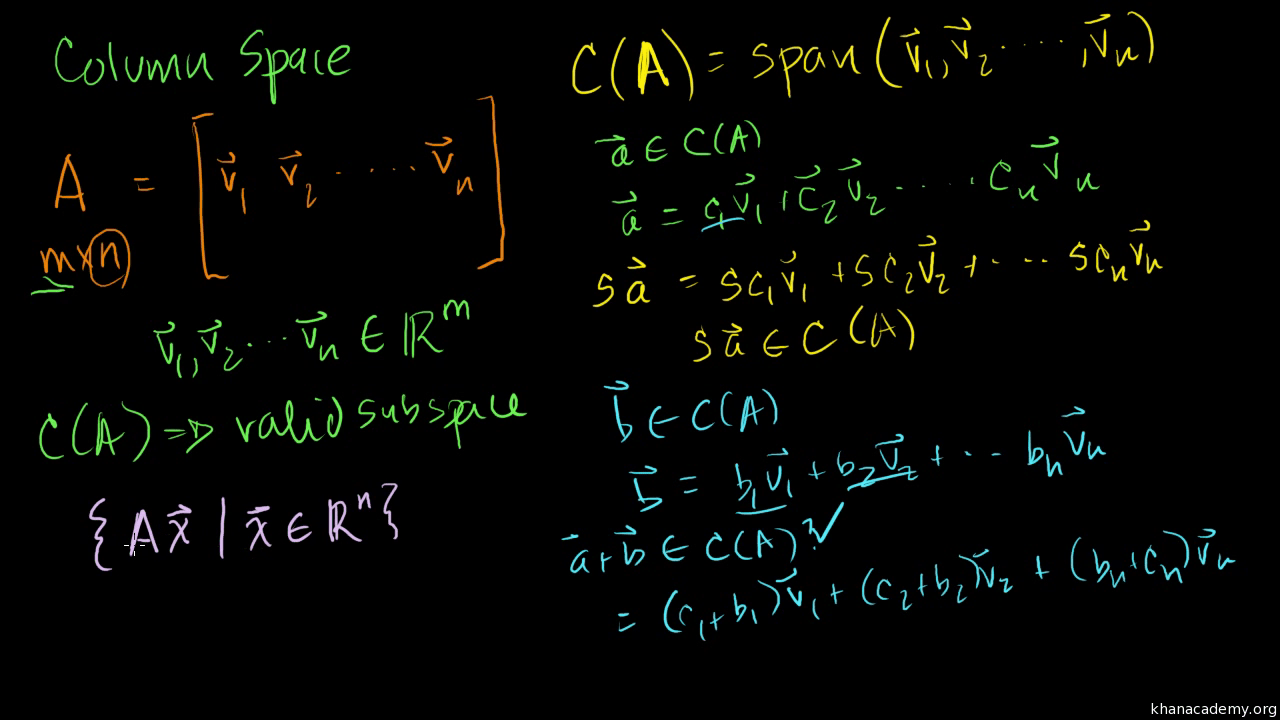 Column Space
A = [v⃗₁ v⃗₂ ····· v⃗ₙ]
m×n
v⃗₁, v⃗₂ ··· v⃗ₙ ∈ ℝᵐ
C(A) ⇒ valid subspace
{Ax⃗ | x⃗ ∈ ℝⁿ}
C(A) = span(v⃗₁, v⃗₂ ·····, v⃗ₙ)
a⃗ ∈ C(A)
a⃗ = c₁v⃗₁ + c⃗₂v⃗₂ ····· cₙv⃗ₙ
sa⃗ = sc₁v⃗₁ + sc₂v⃗₂ + ···· scₙv⃗ₙ
sa⃗ ∈ C(A)
b⃗ ∈ C(A)
b⃗ = b₁v⃗₁ + b₂v⃗₂ + ··· bₙv⃗ₙ
a⃗+b⃗ ∈ C(A)? ✓
= (c₁+b₁)v⃗₁ + (c₂+b₂)v⃗₂ + (bₙ+cₙ)v⃗ₙ
khanacademy.org